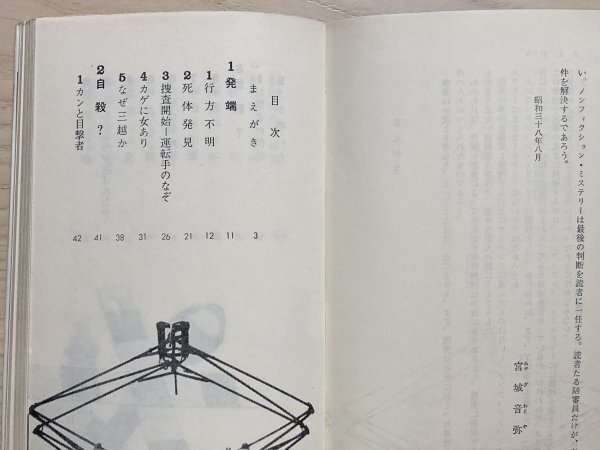 い。ノンフィクション・ミステリーは最後の判断を読者に一任する。読者たる陪審員だけが、
件を解決するであろう。
昭和三十八年八月
宮城音弥
みやぎおとや
目次
まえがき 3
1 発端 11
1 行方不明 12
2 死体発見 21
3 捜査開始―運転手のなぞ 26
4 カゲに女あり 31
5 なぜ三越か 38
2 自殺? 41
1 カンと目撃者 42